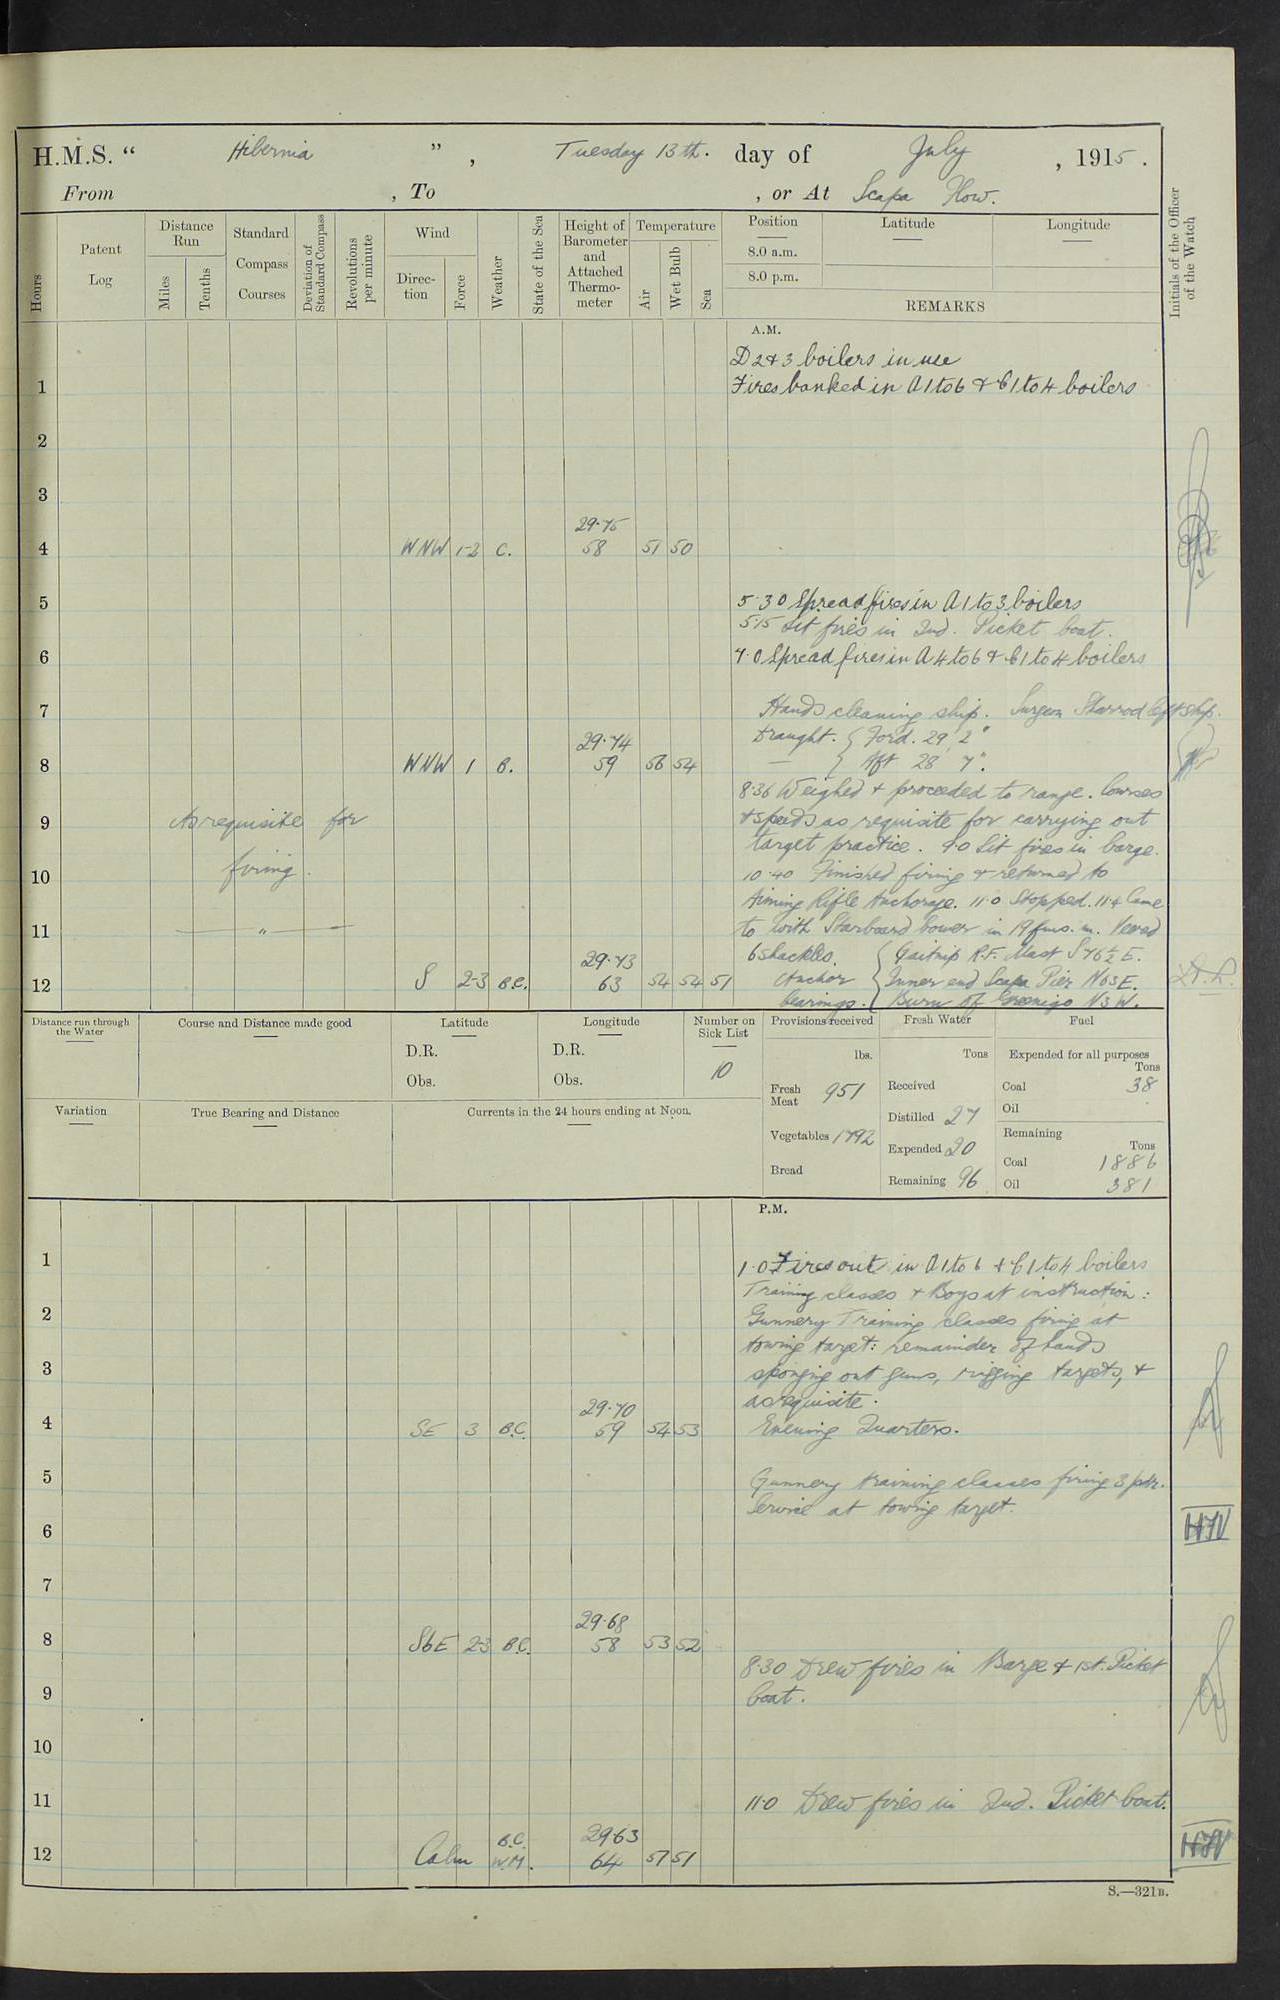 H.M.S. " Hibernia ", Tuesday 13th. day of July, 1915.
From , To , or At Scapa Flow.
Hours
Patent Log
Distance Run
Miles
Tenths
Standard Compass Courses
Deviation of Standard Compass
Revolutions per minute
Wind
Direction
Force
Weather
State of the Sea
Height of Barometer and Attached Thermometer
Temperature
Air
Wet Bulb
Sea
Position
8.0 a.m.
8.0 p.m.
Latitude
Longitude
REMARKS
Initials of the Officer of the Watch
A.M.
D 2 & 3 boilers in use
1 Fires banked in A 1 to 6 & C 1 to 4 boilers
2
3
29.75
4 WNW 1-2 C. 58 51 50
5 5.30 Spread fires in A 1 to 3 boilers
5.15 Lit fires in 2nd. Picket boat.
6 7.0 Spread fires in A 4 to 6 & C 1 to 4 boilers
7 Hands cleaning ship. Surgeon left ship.
29.74 Draught. { Ford. 29' 2"
8 WNW 1 B. 59 56 54 { Aft 28' 7".
8.36 Weighed & proceeded to range. Courses
9 As requisite for & speeds as requisite for carrying out
target practice. 9.0 Lit fires in barge.
10 firing. 10.40 Finished firing & returned to
Aiming Rifle Anchorage. 11.0 Stopped. 11.4 Came
11 — " — to with Starboard bower in 19 fms. m. Veered
29.73 6 shackles. { R.F. Mast S 76½ E.
12 S 2-3 B.C. 63 54 54 51 Anchor { Inner end Scapa Pier N 63 E.
bearings. { Burn of Greenigo N 3 W.
Distance run through the Water
Course and Distance made good
Latitude
D.R.
Obs.
Longitude
D.R.
Obs.
Number on Sick List
10
Provisions received
lbs.
Fresh Meat 951
Vegetables 1792
Bread
Fresh Water
Tons
Received
Distilled 27
Expended 20
Remaining 96
Fuel
Expended for all purposes
Tons
Coal 38
Oil
Remaining
Tons
Coal 1886
Oil 381
Variation
True Bearing and Distance
Currents in the 24 hours ending at Noon.
P.M.
1 1.0 Fires out in A 1 to 6 & C 1 to 4 boilers
Training classes & Boys at instruction:
2 Gunnery Training classes firing at
towing target: remainder of hands
3 sponging out guns, rigging targets, &
29.70 as requisite.
4 SE 3 B.C. 59 54 53 Evening Quarters.
5 Gunnery training classes firing 3 pdr.
Service at towing target.
6
7
29.68
8 SbE 2-3 B.C. 58 53 52
8.30 Drew fires in Barge & 1st. Picket
9 boat.
10
11 11.0 Drew fires in 2nd. Picket boat.
B.C. 29.63
12 Calm W.M. 64 51 51
S.—321B.